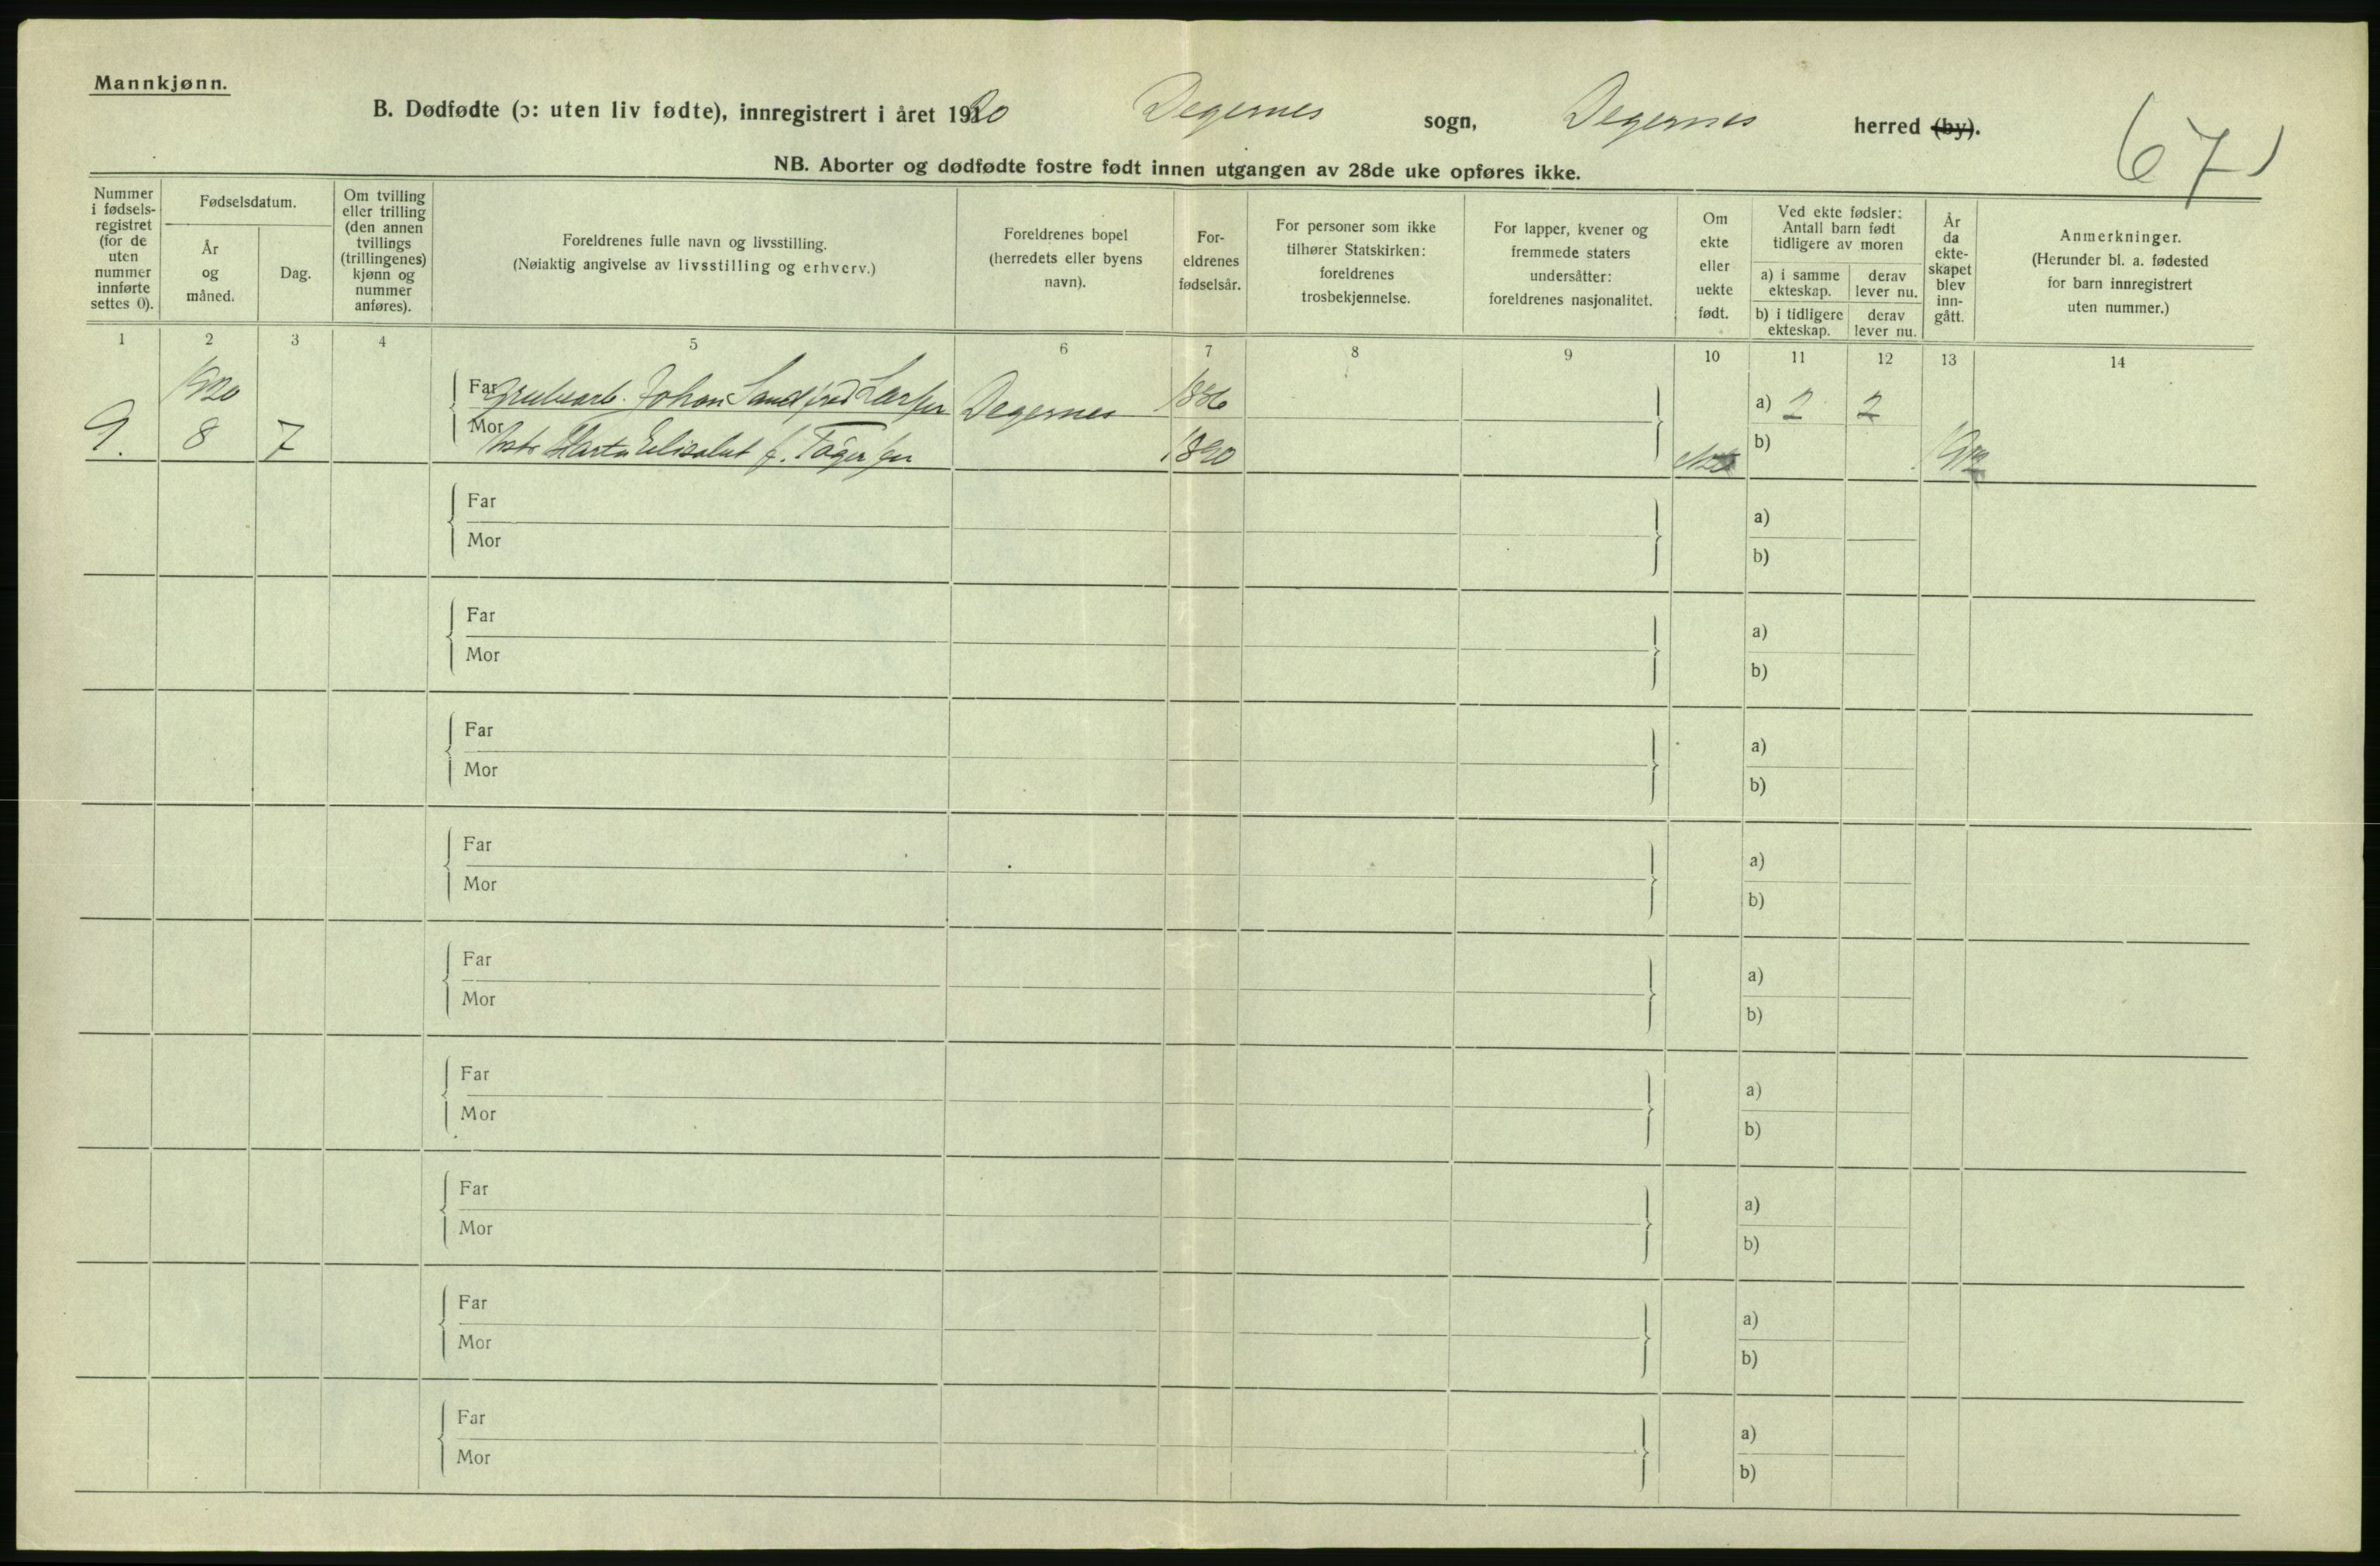 Mannkjønn.
B. Dødfødte (ɔ: uten liv fødte), innregistrert i året 1920 Degernes sogn, Degernes herred (by).
67)
NB. Aborter og dødfødte fostre født innen utgangen av 28de uke opføres ikke.
Nummer i fødsels-registret (for de uten nummer innførte settes 0).
Fødselsdatum.
År og måned.
Dag.
Om tvilling eller trilling (den annen tvillings (trillingenes) kjønn og nummer anføres).
Foreldrenes fulle navn og livsstilling.
(Nøiaktig angivelse av livsstilling og erhverv.)
Foreldrenes bopel (herredets eller byens navn).
For-eldrenes fødselsår.
For personer som ikke tilhører Statskirken: foreldrenes trosbekjennelse.
For lapper, kvener og fremmede staters undersåtter: foreldrenes nasjonalitet.
Om ekte eller uekte født.
Ved ekte fødsler: Antall barn født tidligere av moren
a) i samme ekteskap.
derav lever nu.
b) i tidligere ekteskap.
derav lever nu.
År da ekte-skapet blev inn-gått.
Anmerkninger.
(Herunder bl. a. fødested for barn innregistrert uten nummer.)
1 2 3 4 5 6 7 8 9 10 11 12 13 14
1920
Far Grubearb. Johan Sandfred Larsen Degernes 1886 a) 2 2
9. 8 7 Mor Marta Elisabet f. 1890 b) 1912
Far a)
Mor b)
Far a)
Mor b)
Far a)
Mor b)
Far a)
Mor b)
Far a)
Mor b)
Far a)
Mor b)
Far a)
Mor b)
Far a)
Mor b)
Far a)
Mor b)